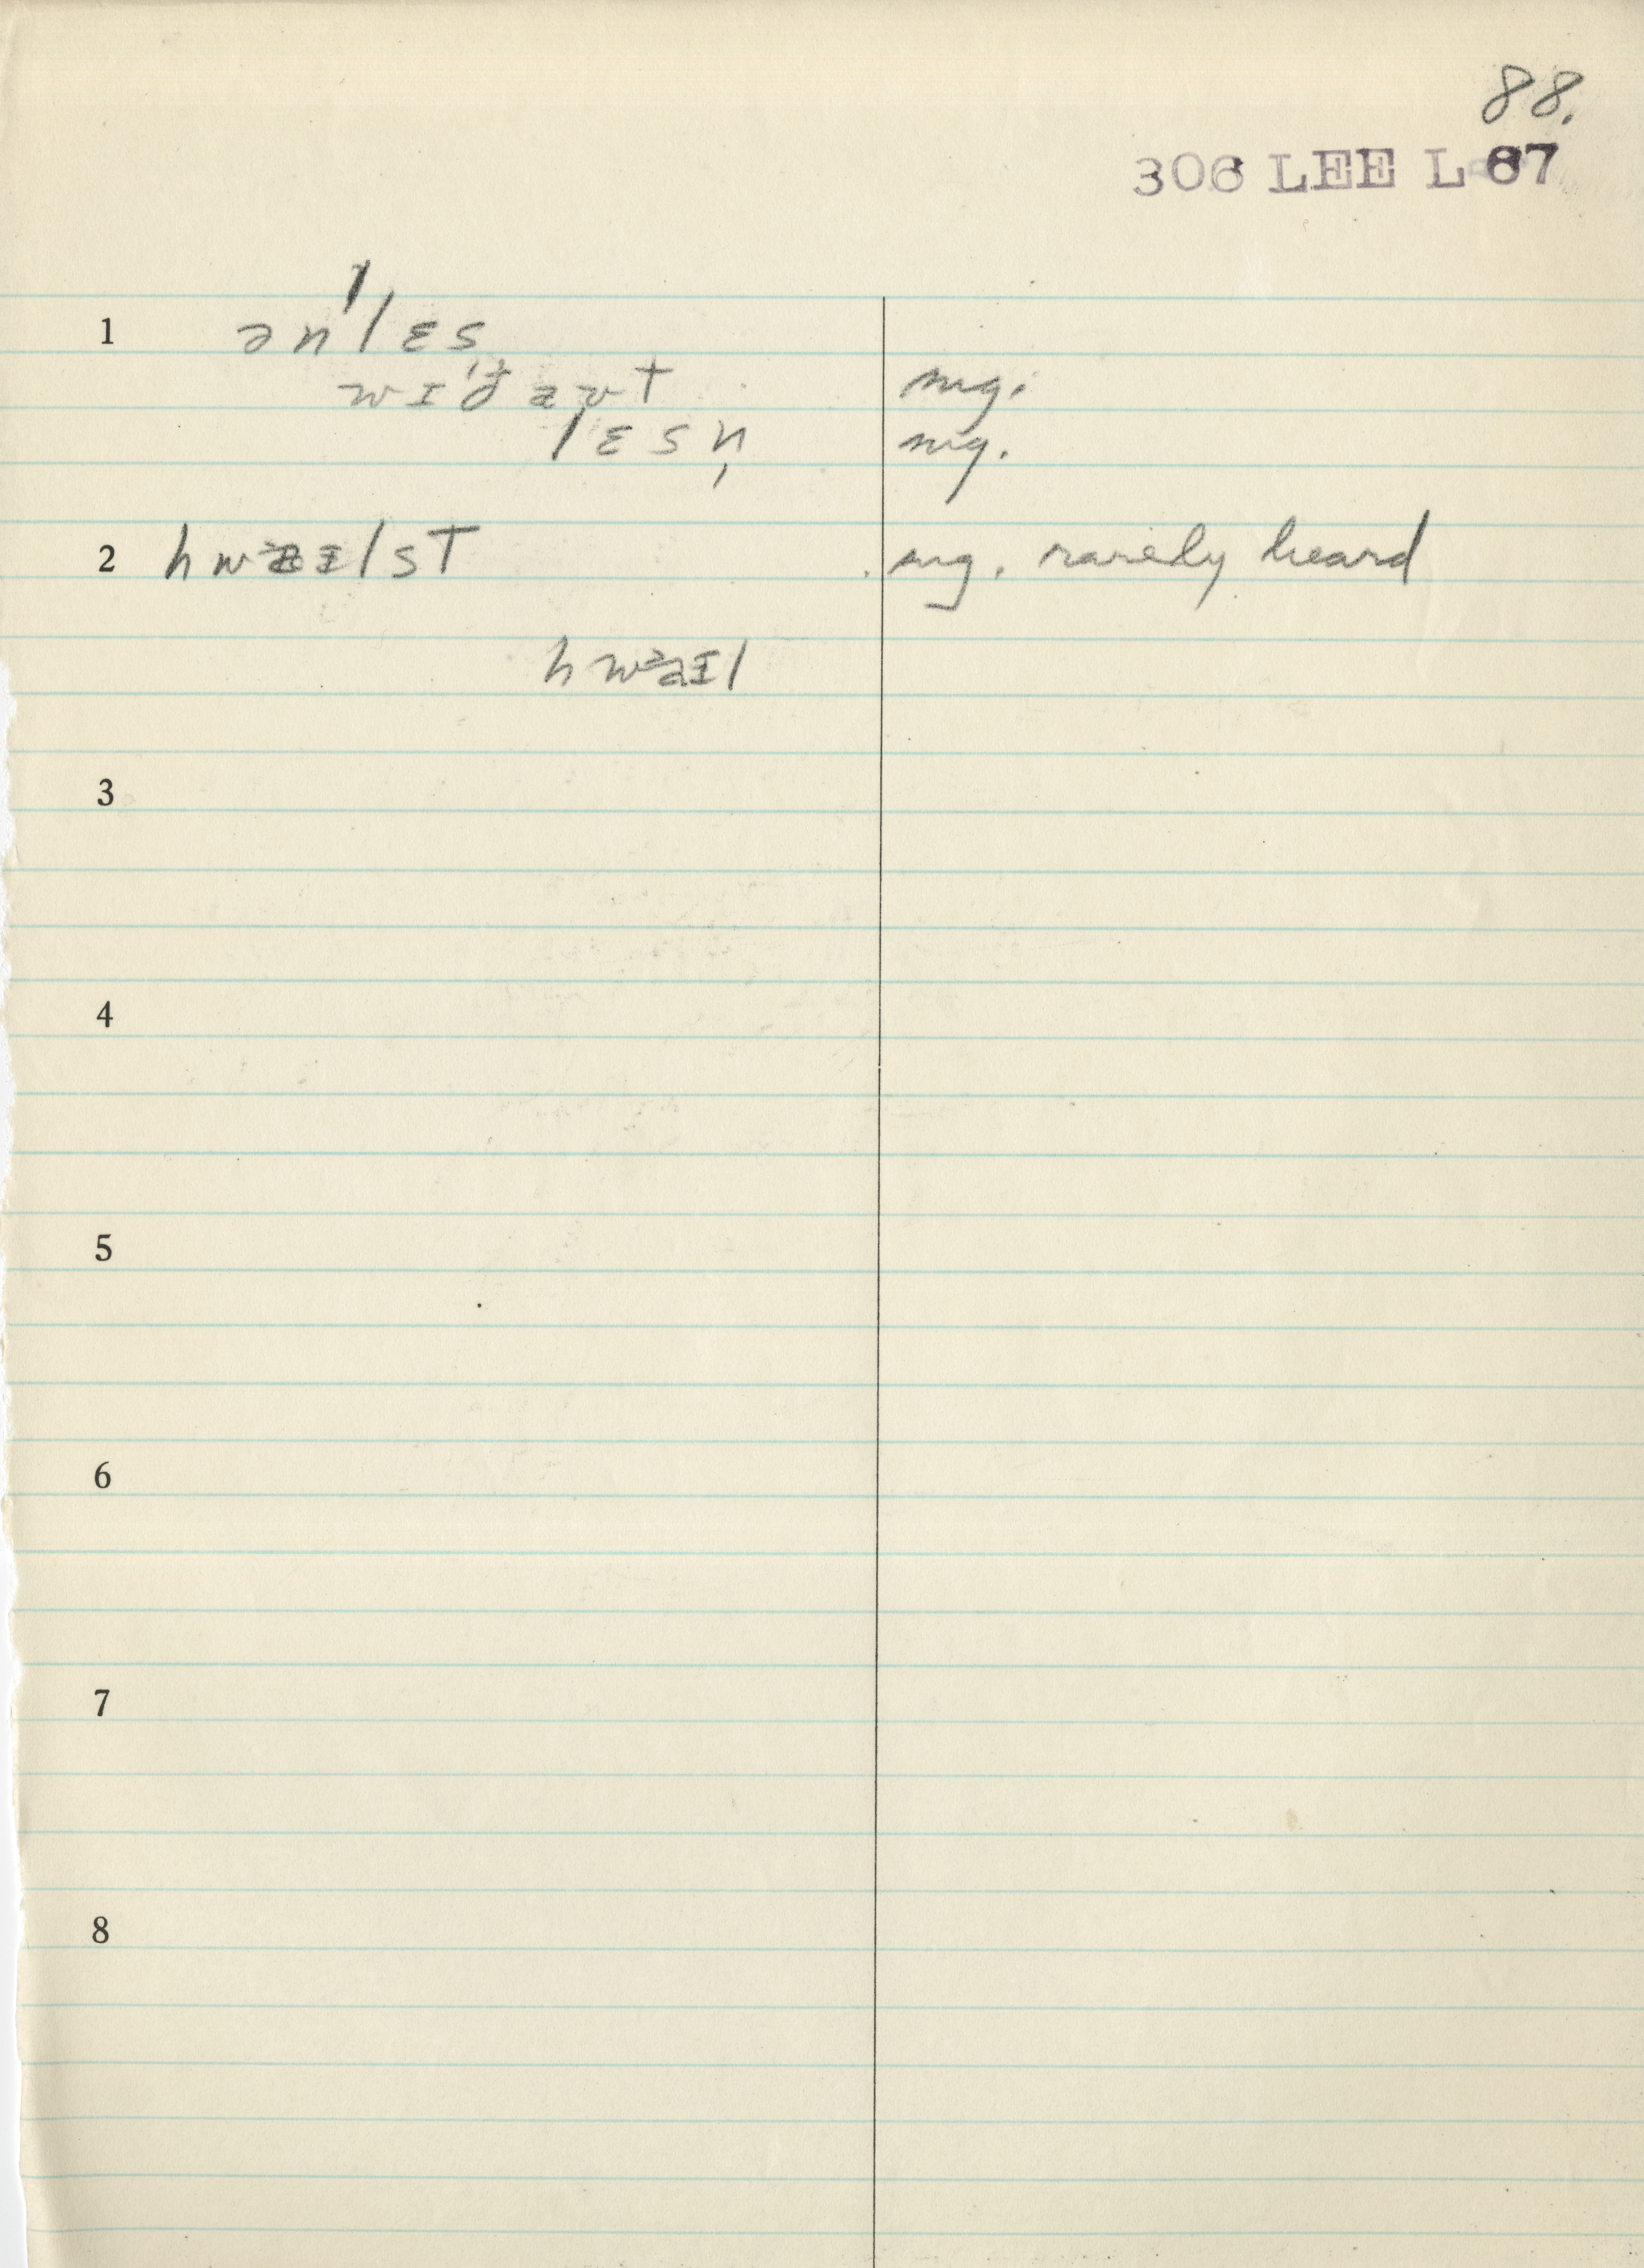 88.
306 LEE L 67
1 ənˈlɛs
wɪˈðaʊt mg.
lɛsn̩ mg.
2 hwaɪlst mg. rarely heard
hwaɪl
3
4
5
6
7
8